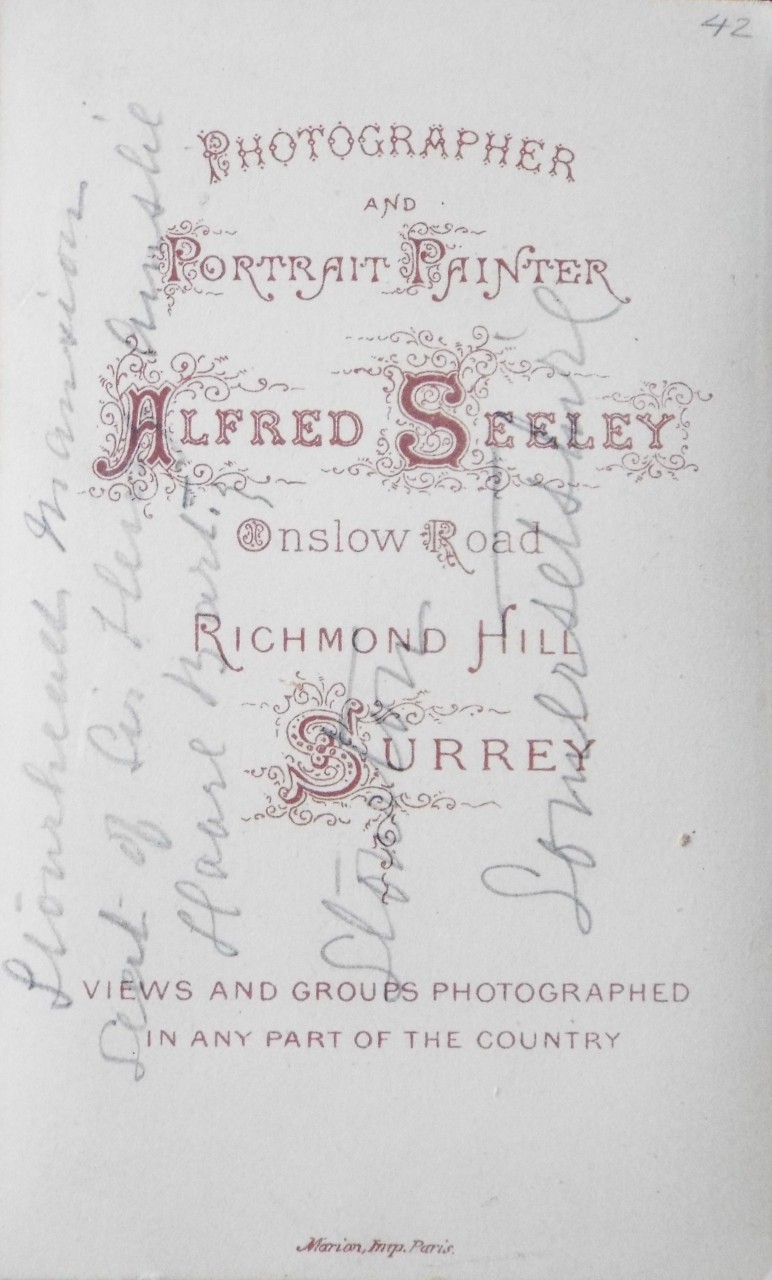 42
PHOTOGRAPHER
AND
PORTRAIT PAINTER
ALFRED SEELEY
Onslow Road
RICHMOND HILL
SURREY
VIEWS AND GROUPS PHOTOGRAPHED
IN ANY PART OF THE COUNTRY
Marion, Imp. Paris.
Stourhead Mansion
Seat of Sir Hen Ainslie
Hoare Bart.
Stourton
Somersetshire